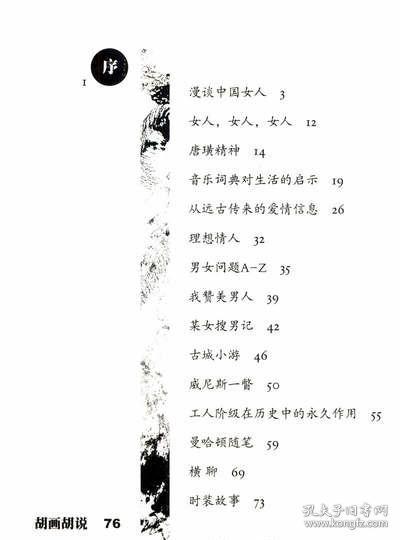 序
1
漫谈中国女人 3
女人，女人，女人 12
唐璜精神 14
音乐词典对生活的启示 19
从远古传来的爱情信息 26
理想情人 32
男女问题A-Z 35
我赞美男人 39
某女搜男记 42
古城小游 46
威尼斯一瞥 50
工人阶级在历史中的永久作用 55
曼哈顿随笔 59
横聊 69
时装故事 73
胡画胡说 76
孔夫子旧书网